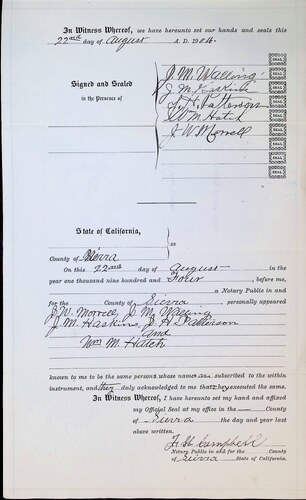 In Witness Whereof, we have hereunto set our hands and seals this
22nd day of August A. D. 1904.
Signed and Sealed
in the Presence of
J. M. Walling SEAL
J. M. Haskins SEAL
J. H. Patterson SEAL
Wm M. Hatch SEAL
J. W. Morrell SEAL
SEAL
SEAL
SEAL
SEAL
State of California,
County of Sierra } ss
On this 22nd day of August in the
year one thousand nine hundred and Four before me,
a Notary Public in and
for the County of Sierra, personally appeared
J. W. Morrell, J. M. Walling
J. M. Haskins, J. H. Patterson
and
Wm M. Hatch
known to me to be the same persons whose names are subscribed to the within
instrument, and they duly acknowledged to me that they executed the same.
In Witness Whereof, I have hereunto set my hand and affixed
my Official Seal at my office in the County
of Sierra the day and year last
above written.
Campbell
Notary Public in and for the County
of Sierra State of California.